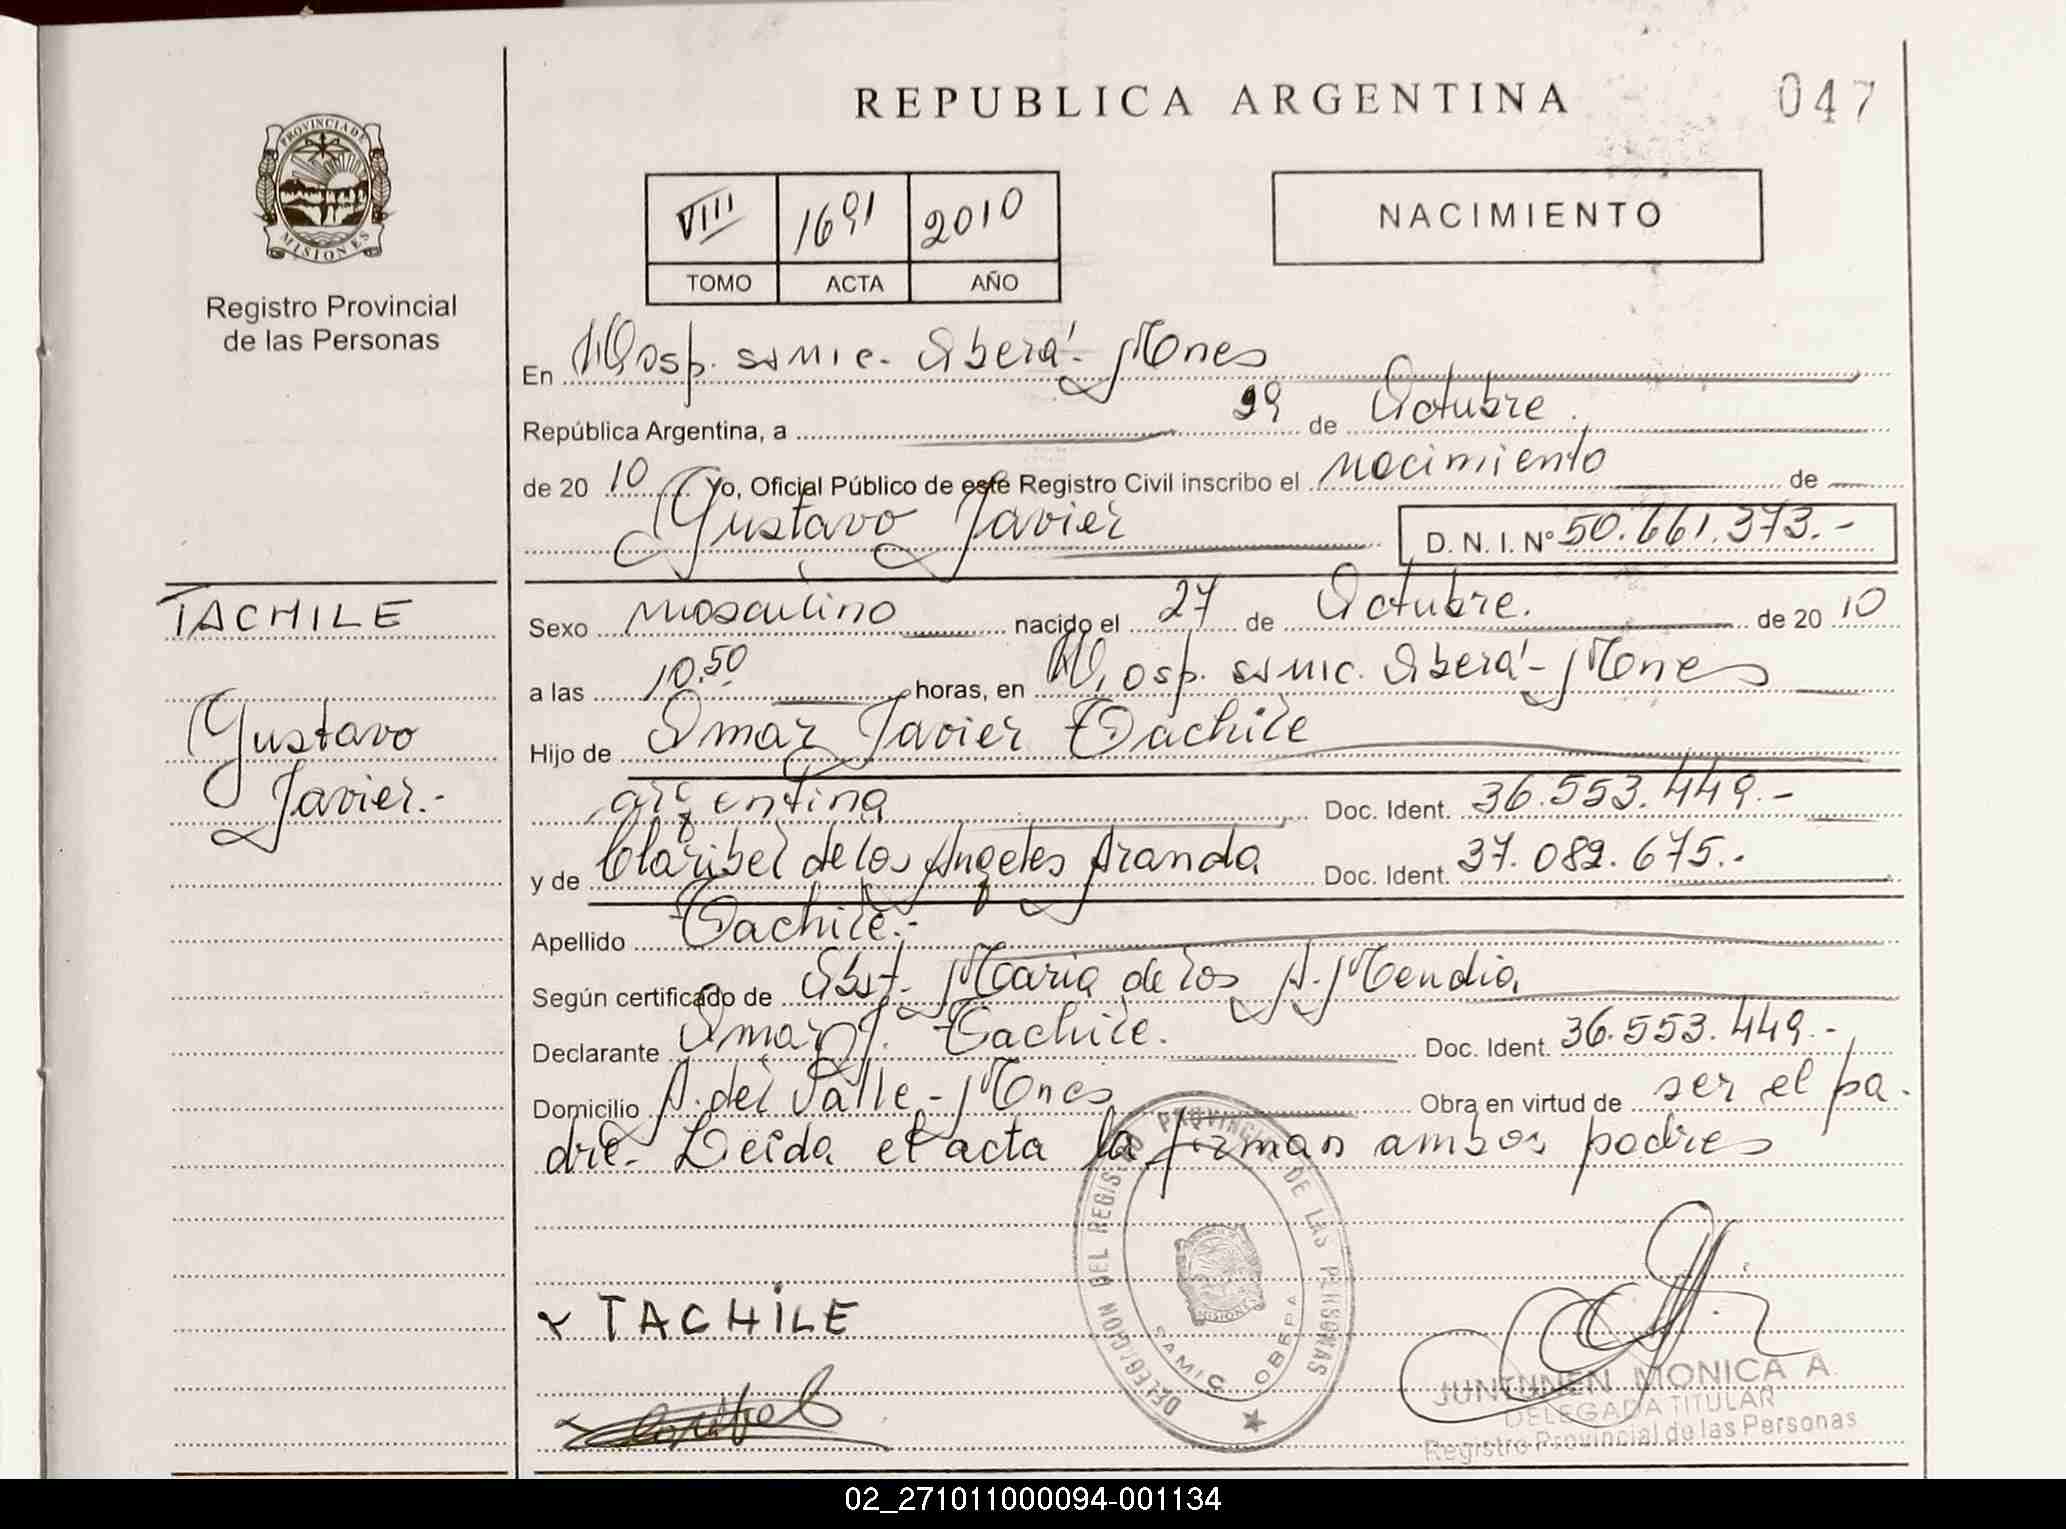 REPUBLICA ARGENTINA
047
PROVINCIA DE
MISIONES
Registro Provincial
de las Personas
VIII 1691 2010
TOMO ACTA AÑO
NACIMIENTO
En Hosp. samic. Oberá - Mnes
República Argentina, a 29 de Octubre.
de 20 10 Yo, Oficial Público de este Registro Civil inscribo el nacimiento de
Gustavo Javier D. N. I. Nº 50.661.373.-
TACHILE
Gustavo
Javier.-
Sexo masculino nacido el 27 de Octubre. de 20 10
a las 10.50 horas, en Hosp. samic. Oberá - Mnes
Hijo de Omar Javier Tachile
argentina Doc. Ident. 36.553.449.-
y de Claribel de los Angeles Aranda Doc. Ident. 37.082.675.-
Apellido Tachile.-
Según certificado de Obst. Maria de los A. Mendia
Declarante Omar J. Tachile. Doc. Ident. 36.553.449.-
Domicilio A. del Valle - Mnes Obra en virtud de ser el pa-
dre. Leida el acta la firman ambos padres
TACHILE
DELEGACION DEL REGISTRO PROVINCIAL DE LAS PERSONAS
MISIONES
SAMIC OBERA
JUNTUNEN MONICA A.
DELEGADA TITULAR
Registro Provincial de las Personas
02_271011000094-001134